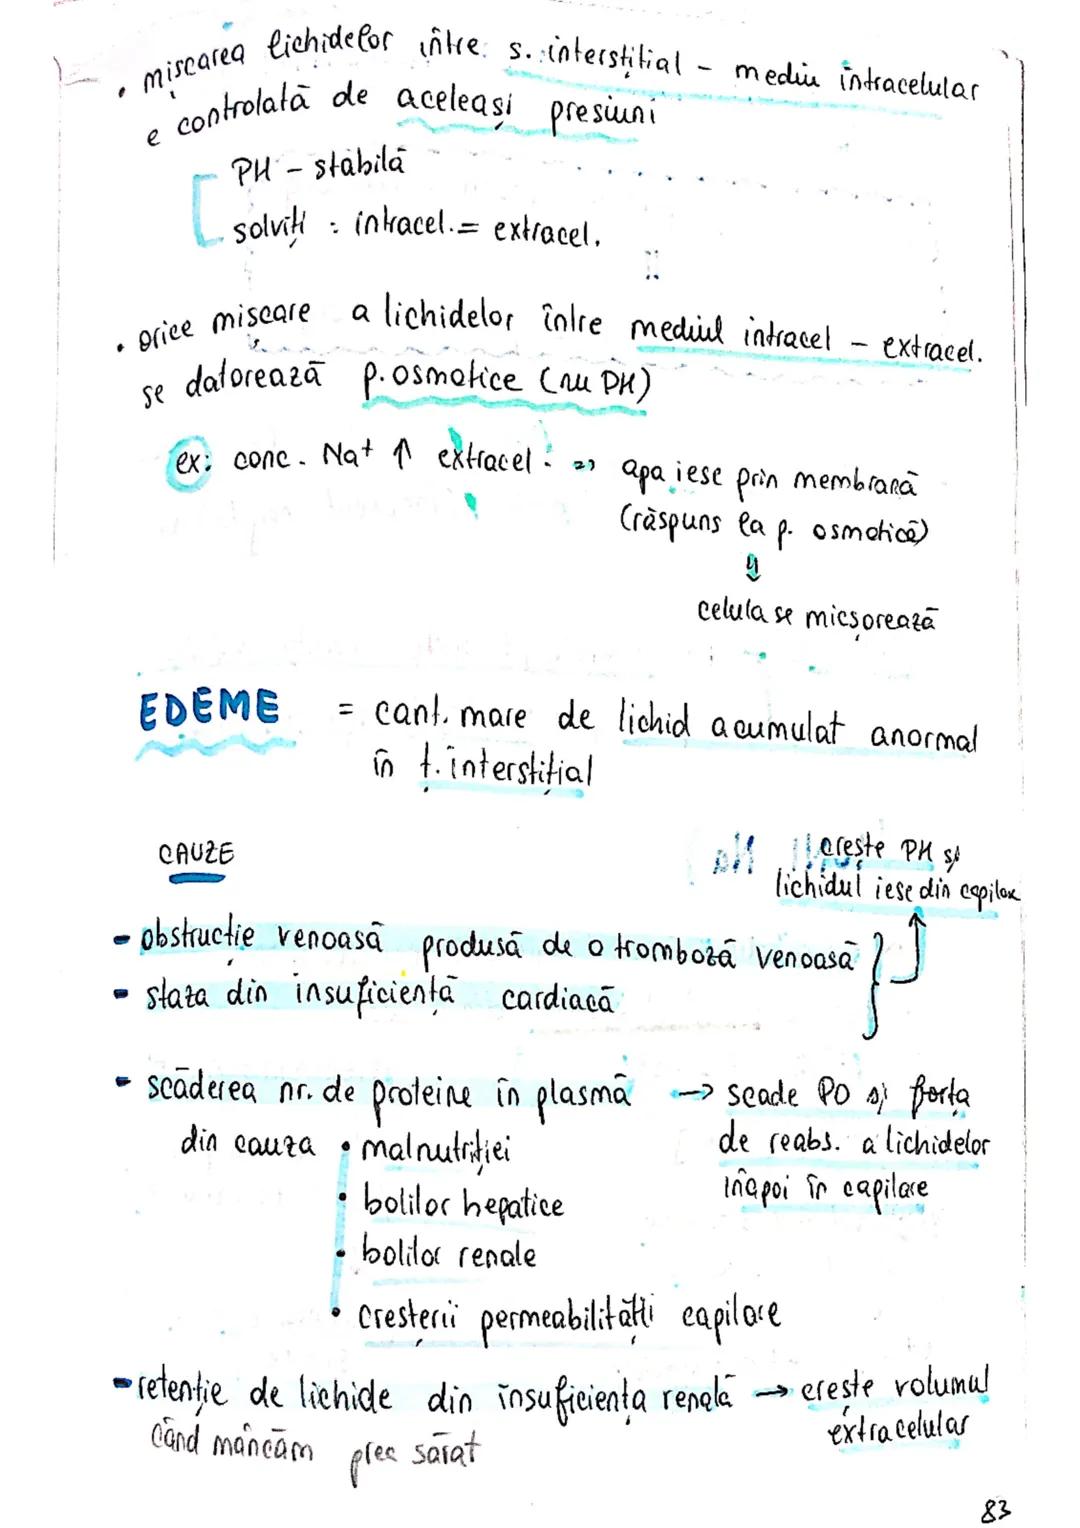 • mișcarea lichidelor între s. interstițial – mediu intracelular
e controlată de aceleași presiuni
PH – stabilă
solviți : intracel. = extracel.
• orice mișcare a lichidelor între mediul intracel – extracel.
se datorează p. osmotice (nu PH)
ex: conc. Na+ ↑ extracel. => apa iese prin membrană
(răspuns la p. osmotică)
⇓
celula se micșorează
EDEME = cant. mare de lichid acumulat anormal
în ț. interstițial
CAUZE
crește PH și
lichidul iese din capilare
- obstrucție venoasă produsă de o tromboză venoasă
- staza din insuficiență cardiacă
- scăderea nr. de proteine în plasmă → scade PO și forța
din cauza • malnutriției de reabs. a lichidelor
• bolilor hepatice înapoi în capilare
• bolilor renale
• creșterii permeabilității capilare
- retenție de lichide din insuficiența renală → crește volumul
când mâncăm prea sărat extracelular
83